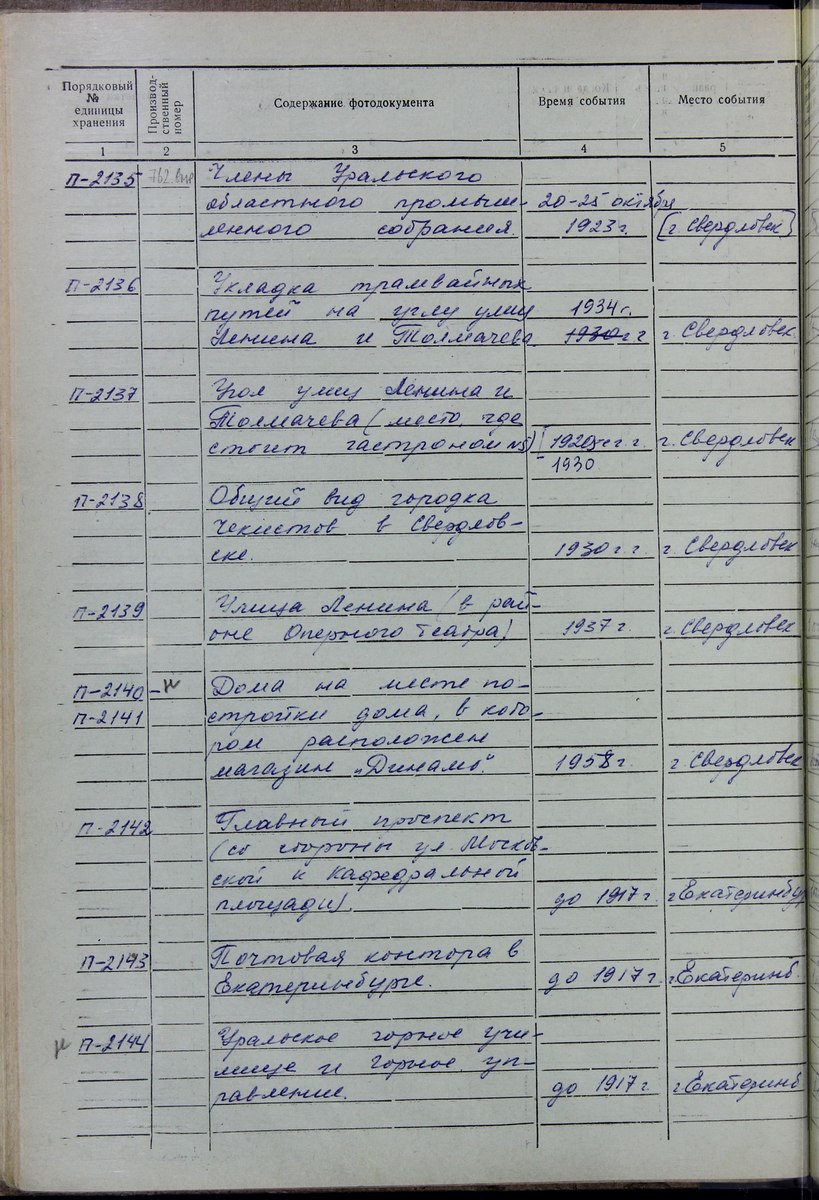 Порядковый № единицы хранения
Производ-ственный номер
Содержание фотодокумента
Время события
Место события
1 2 3 4 5
П-2135 Члены Уральского
областного промыш- 20-25 октября
ленного собрания. 1923 г. [г. Свердловск]
П-2136 Укладка трамвайных
путей на углу улиц 1934 г.
Ленина и Толмачева 1930 г г г. Свердловск
П-2137 Угол улиц Ленина и
Толмачева (место, где
стоит гастроном №5) г. г. г. Свердловск
1930
П-2138 Общий вид городка
чекистов в Свердлов-
ске. 1930 г. г. г. Свердловск
П-2139 Улица Ленина (в рай-
оне Оперного театра) 1937 г. г. Свердловск
П-2140- Дома на месте по-
П-2141 стройки дома, в кото-
ром расположен
магазин „Динамо". 1958 г. г Свердловск
П-2142 Главный проспект
(со стороны ул. Москов-
ской к Кафедральной
площади). до 1917 г. г Екатеринбур
П-2143 Почтовая контора в
Екатеринбурге. до 1917 г. г Екатеринб.
П-2144 Уральское горное учи-
лище и Горное уп-
равление. до 1917 г. г Екатеринб